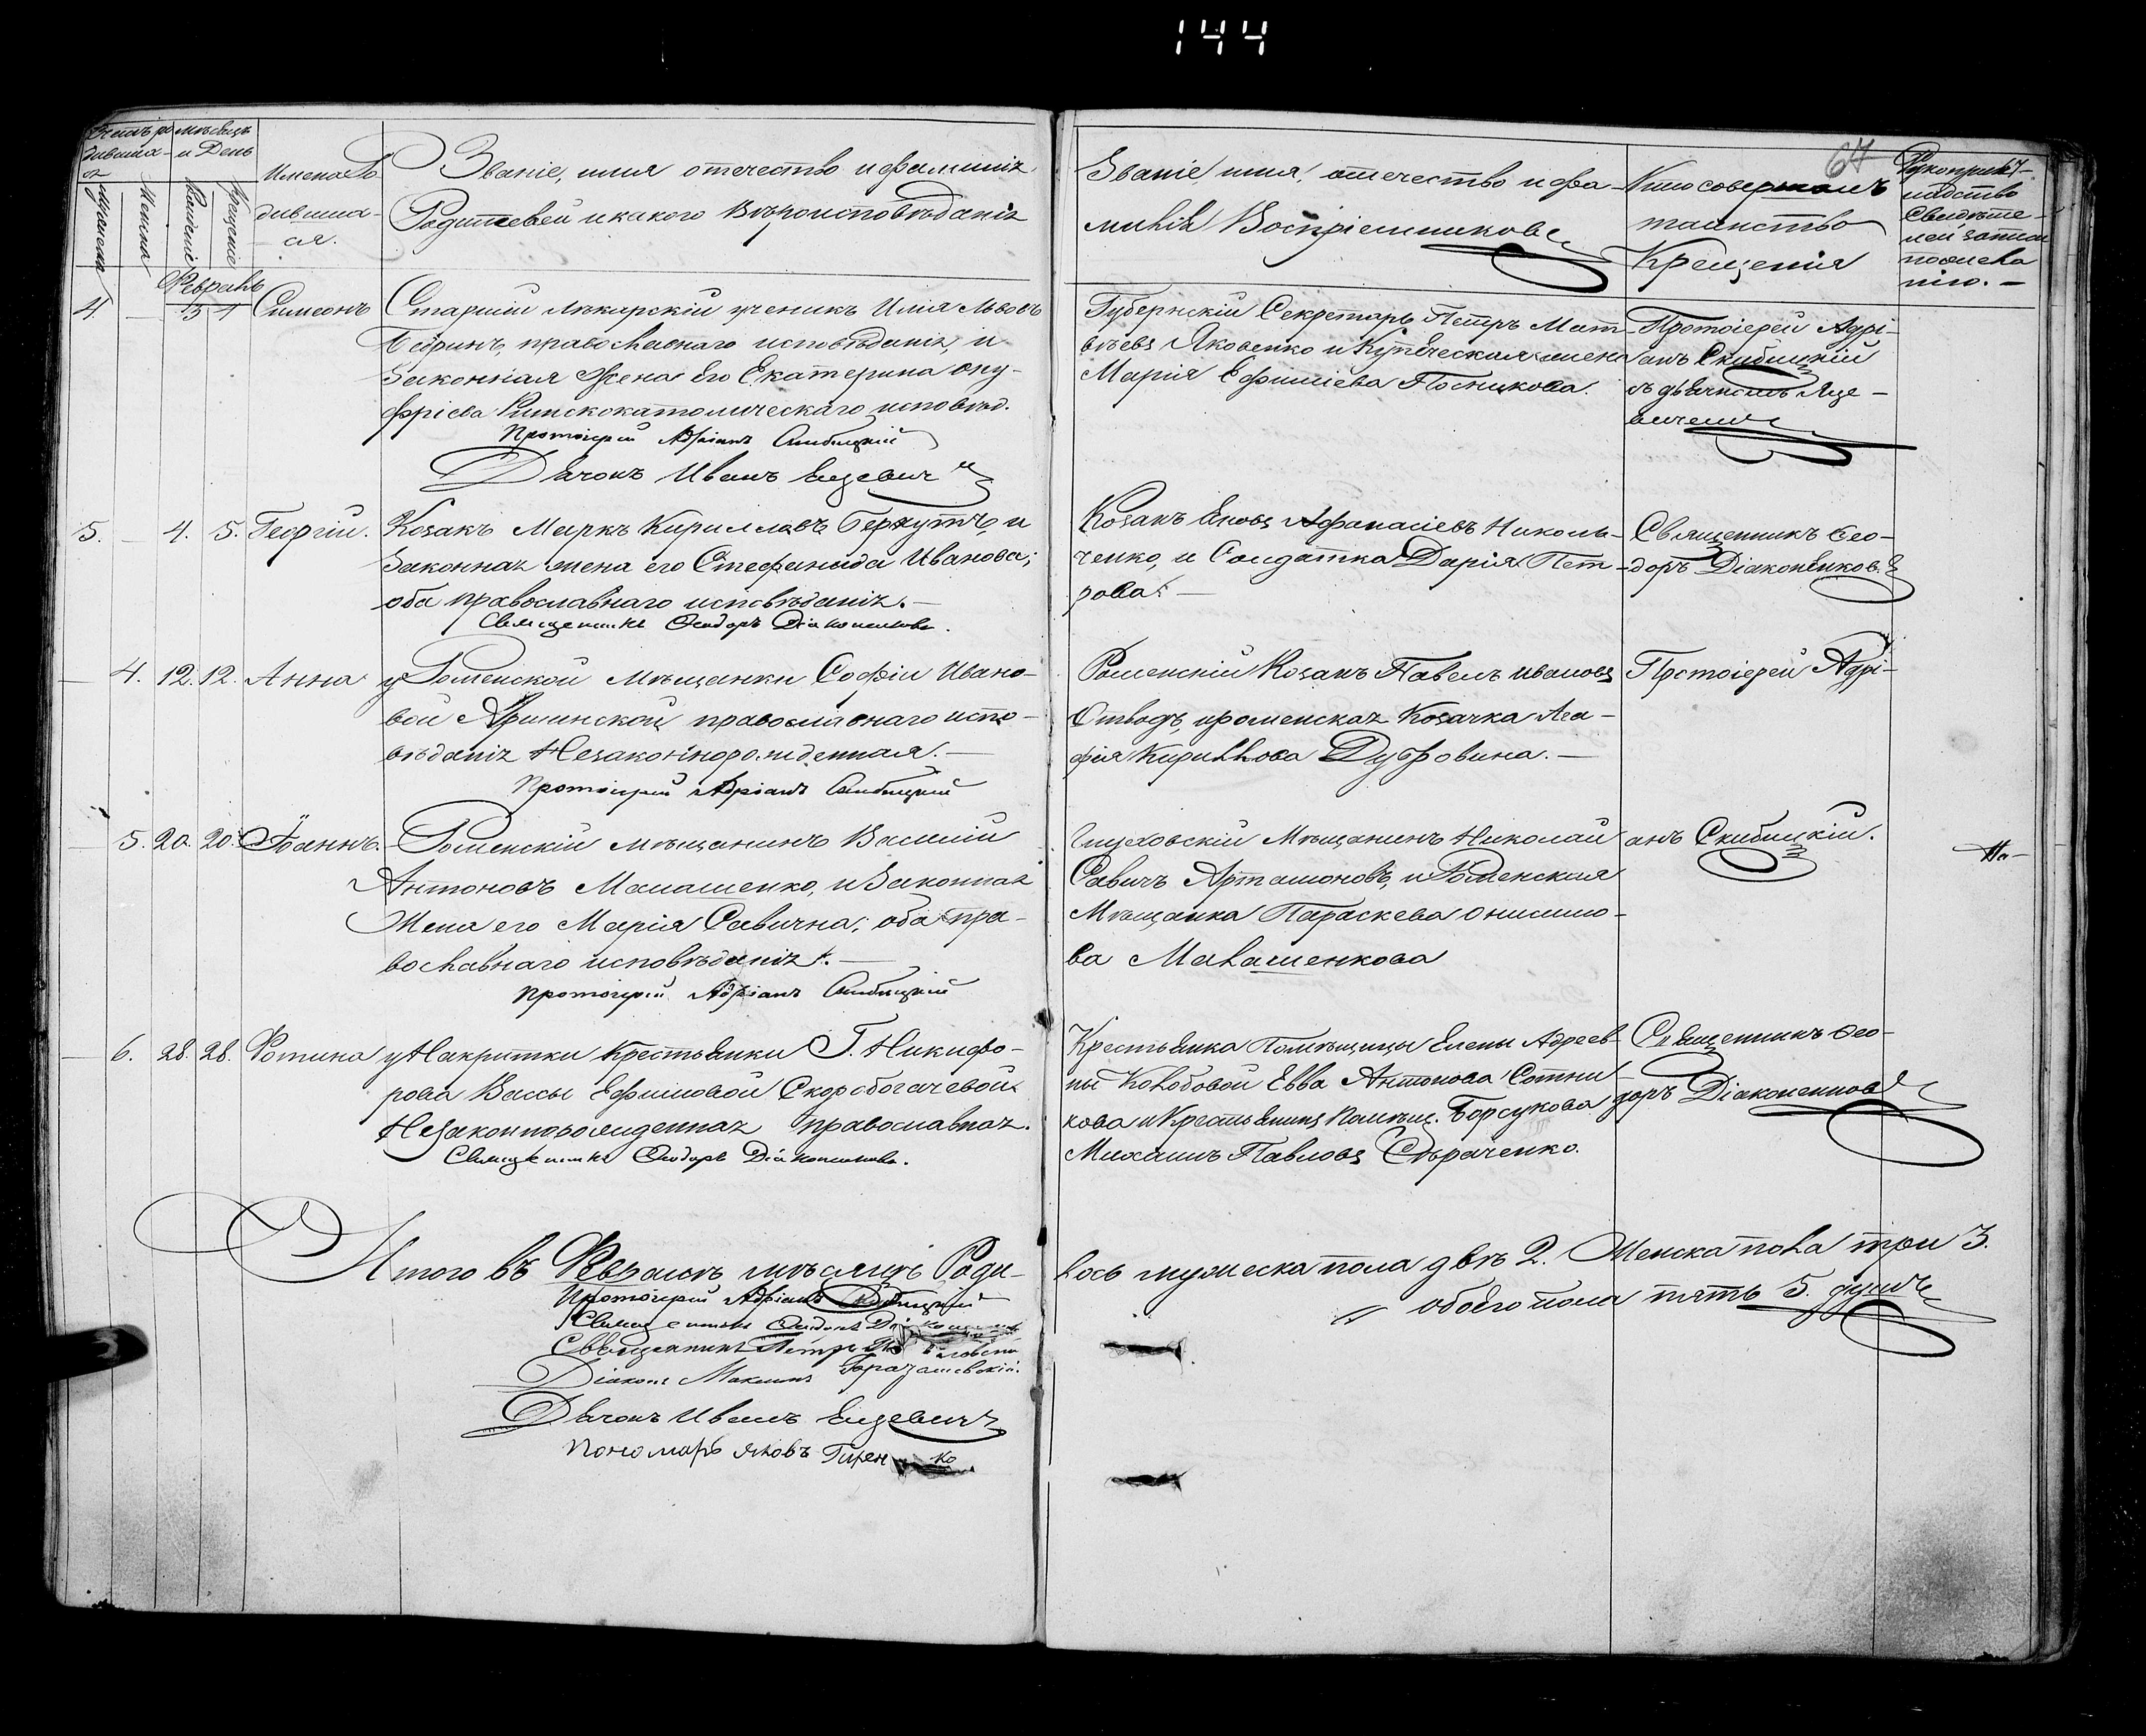 144
67
Счетъ ро
дивша-
ся
мѣсяцъ
и День
Мужеска
Женска
Рожденіе
Крещеніе
Имена Ро
дивша-
ся.
Званіе, имя отечество и фамилія
Родителей и какого Вѣроисповѣданія
Званіе, имя, отечество и фа-
милія Воспріемниковъ
Кто совершалъ
таинство
Крещенія
Рукоприк-
ладство
Свидѣте-
лей записи
по желa
нію. —
Февраль
4. — 3 1 Симеонъ
Старшій лѣкарскій ученикъ Илія Львовъ
православнаго исповѣданія, и
Законная Жена Его Екатерина Ону-
фріева Римскокатолическаго исповѣд.
Протоіерей Адріанъ Скибицкій
Дячокъ Иванъ Яцевич
Губернскій Секретарь Петръ Мат-
вѣевъ Яковенко и Купеческая жена
Марія Ефиміева Посникова.
Протоіерей Адрі-
анъ Скибицкій
съ дьячкомъ Яце-
вичемъ
5. — 4. 5. Георгій.
Козакъ Маркъ Кирилловъ и
Законная жена его Стефанида Иванова;
оба православнаго исповѣданія. —
Священникъ Ѳеодоръ Діаконенковъ.
Козакъ Яковъ Афанасіевъ Николь-
ченко, и Солдатка Дарія Пет-
рова. —
Священникъ Ѳео-
доръ Діаконенковъ
— 4. 12. 12. Анна
у Роменской Мѣщанки Софіи Ивано-
вой православнаго испо-
вѣданія Незаконнорожденная. —
Протоіерей Адріанъ Скибицкій
Роменскій Козакъ Павелъ Ивановъ
Отводъ, и роменская Козачка Ага-
фія Кириллова Дубровина. —
Протоіерей Адрі-
— 5. 20. 20. Іоаннъ.
Роменскій мѣщанинъ Василій
Антоновъ Малашенко, и Законная
Жена его Марія Савична; оба пра-
вославнаго исповѣданія. —
Протоіерей Адріанъ Скибицкій
Глуховскій Мѣщанинъ Николай
Савичъ Артамоновъ, и Роменская
Мѣщанка Параскева Онисимо-
ва Малашенкова
анъ Скибицкій.
— 6. 28. 28. Фотина
у Накритки Крестьянки Г. Никифо-
рова Вассы Ефимовой Скоробогачевой
Незаконнорожденная православная.
Священникъ Ѳеодоръ Діаконенковъ.
Крестьянка Помѣщицы Елены Адреев-
ны Колобовой Евва Антонова Сотни-
кова и Крестьянинъ Помѣщ. Борсукова
Михаилъ Павловъ Сѣраченко.
Священникъ Ѳео-
доръ Діаконенковъ
Итого въ Февралѣ мѣсяцѣ Роди-
лось мужеска пола двѣ 2. Женска пола три 3.
обоего пола пять 5. душъ
Протоіерей Адріанъ Скибицкій
Священникъ Ѳеодоръ
Священникъ Петръ
Діаконъ Максимъ
Дячокъ Иванъ Яцевичъ
Пономарь Яковъ Гиренко